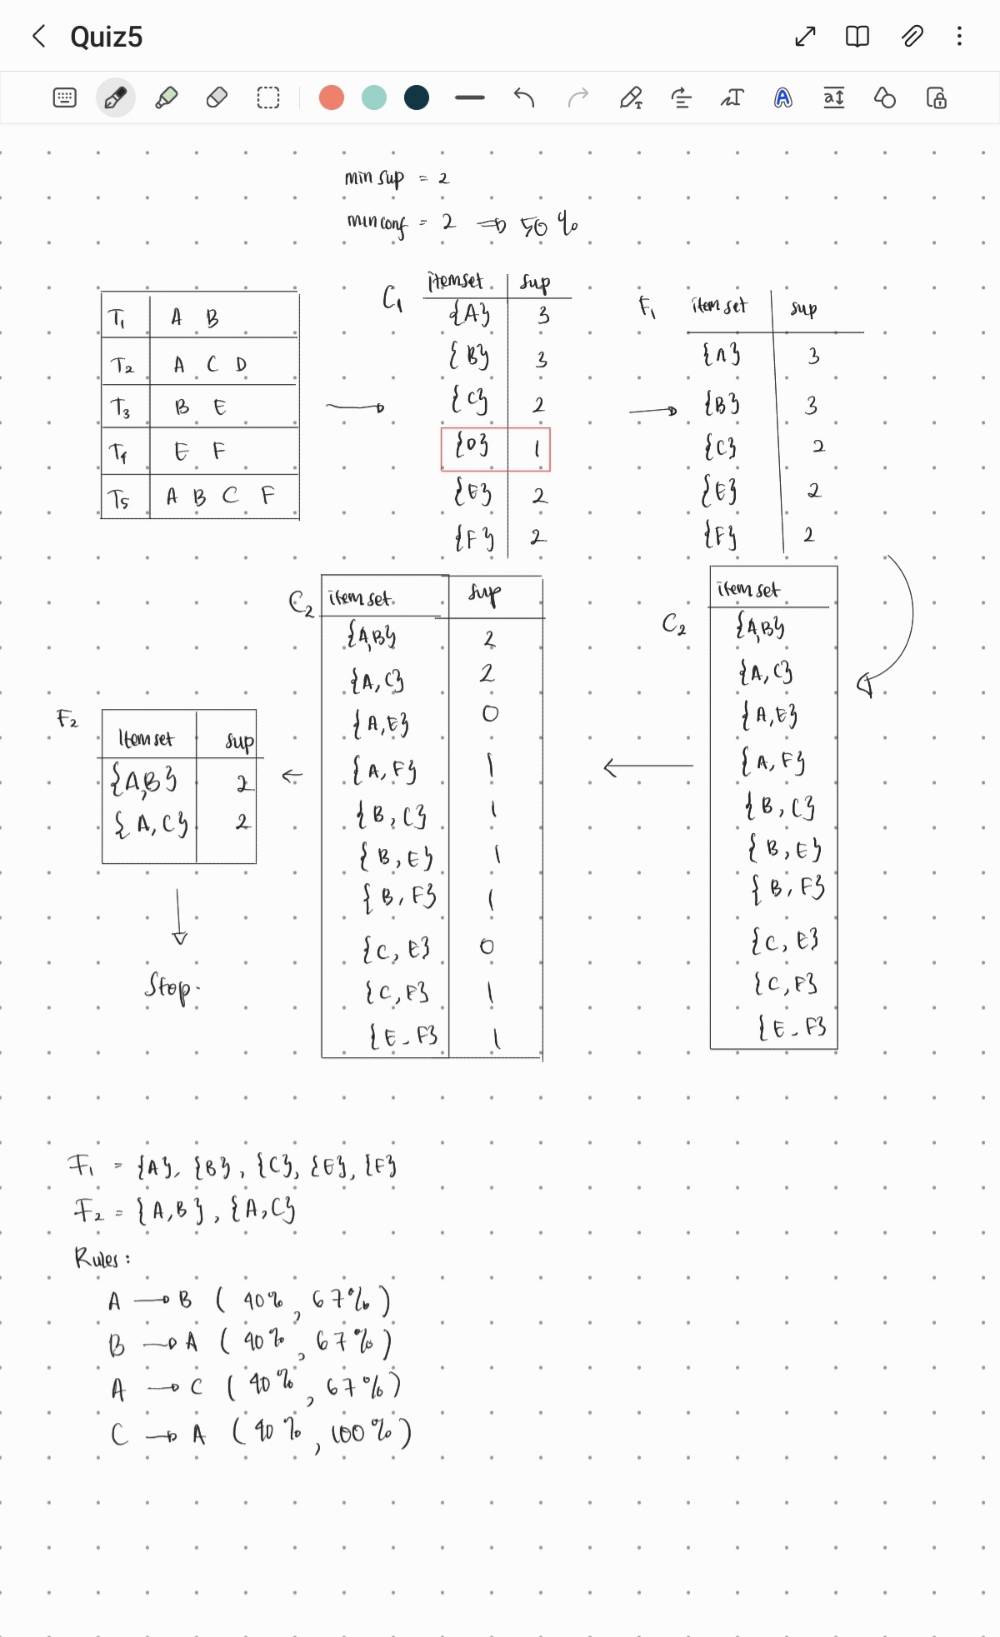 Quiz5
min sup = 2
minconf = 2 ⇒ 50%
T1 A B
T2 A C D
T3 B E
T4 E F
T5 A B C F
C1 itemset sup
{A} 3
{B} 3
{C} 2
{D} 1
{E} 2
{F} 2
F1 item set sup
{A} 3
{B} 3
{C} 2
{E} 2
{F} 2
C2 item set
{A,B}
{A,C}
{A,E}
{A,F}
{B,C}
{B,E}
{B,F}
{C,E}
{C,F}
{E-F}
C2 itemset sup
{A,B} 2
{A,C} 2
{A,E} 0
{A,F} 1
{B,C} 1
{B,E} 1
{B,F} 1
{C,E} 0
{C,F} 1
{E-F} 1
F2 Itemset sup
{A,B} 2
{A,C} 2
Stop.
F1 = {A}, {B}, {C}, {E}, {F}
F2 = {A,B}, {A,C}
Rules:
A → B (40%, 67%)
B → A (40%, 67%)
A → C (40%, 67%)
C → A (40%, 100%)